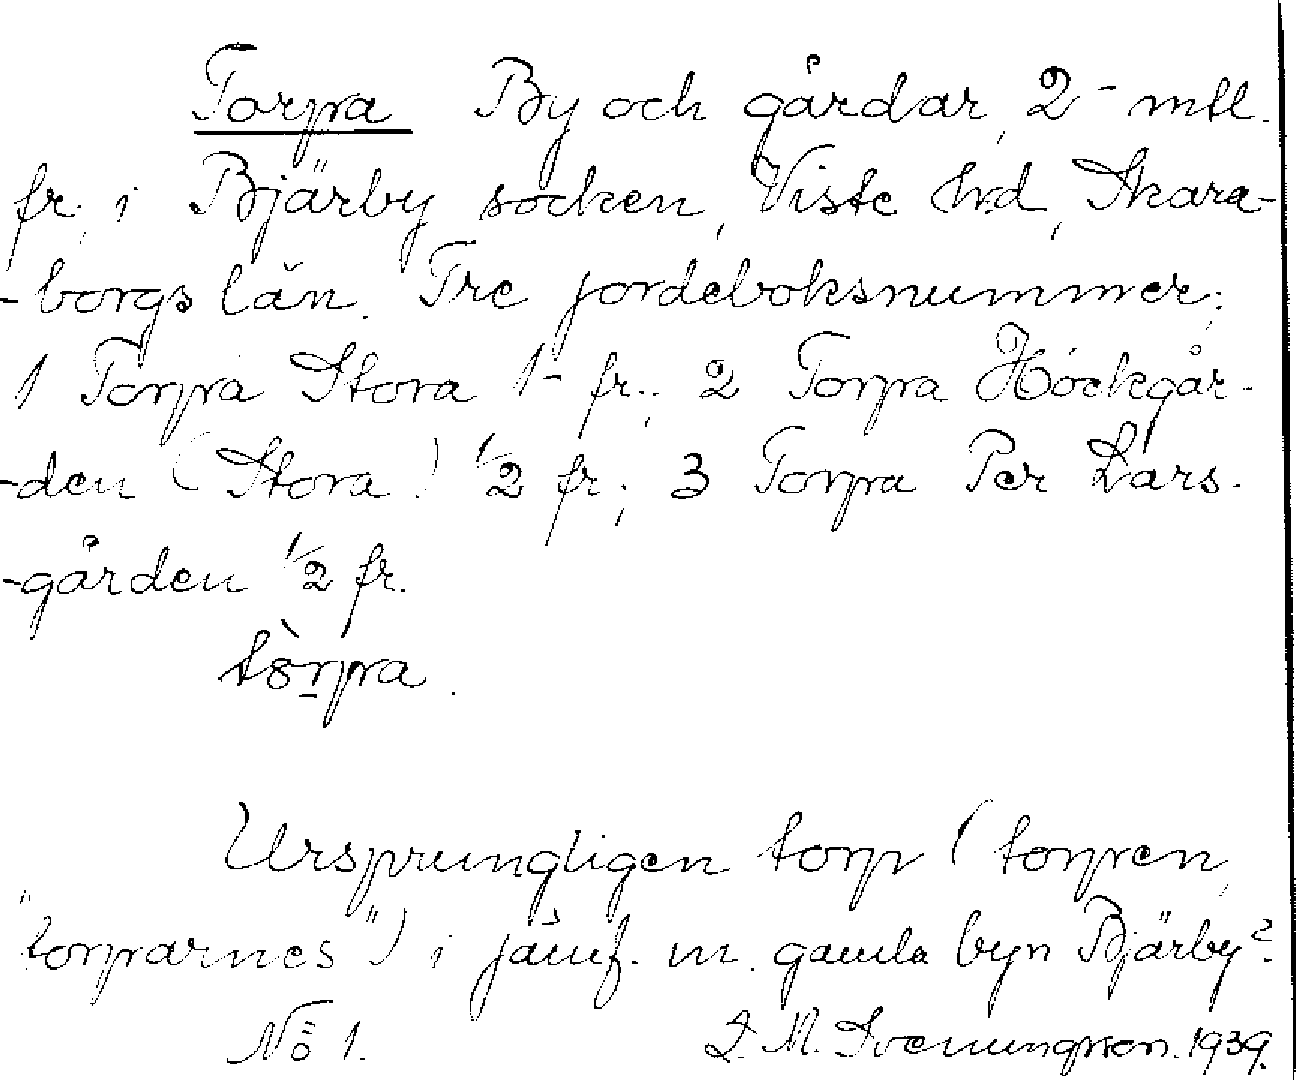 Torpa By och gårdar, 2 - mtl.
fr., i Bjärby socken, Viste hd, Skara-
-borgs län. Tre jordeboksnummer:
1 Torpa Stora 1 - fr.; 2 Torpa Höckgår-
-den (Stora) 1/2 fr.; 3 Torpa Per Lars-
-gården 1/2 fr.
Ursprungligen torp (torpen,
"torparnes") i jämf. m. gamla byn Bjärby?
No 1. 1939.